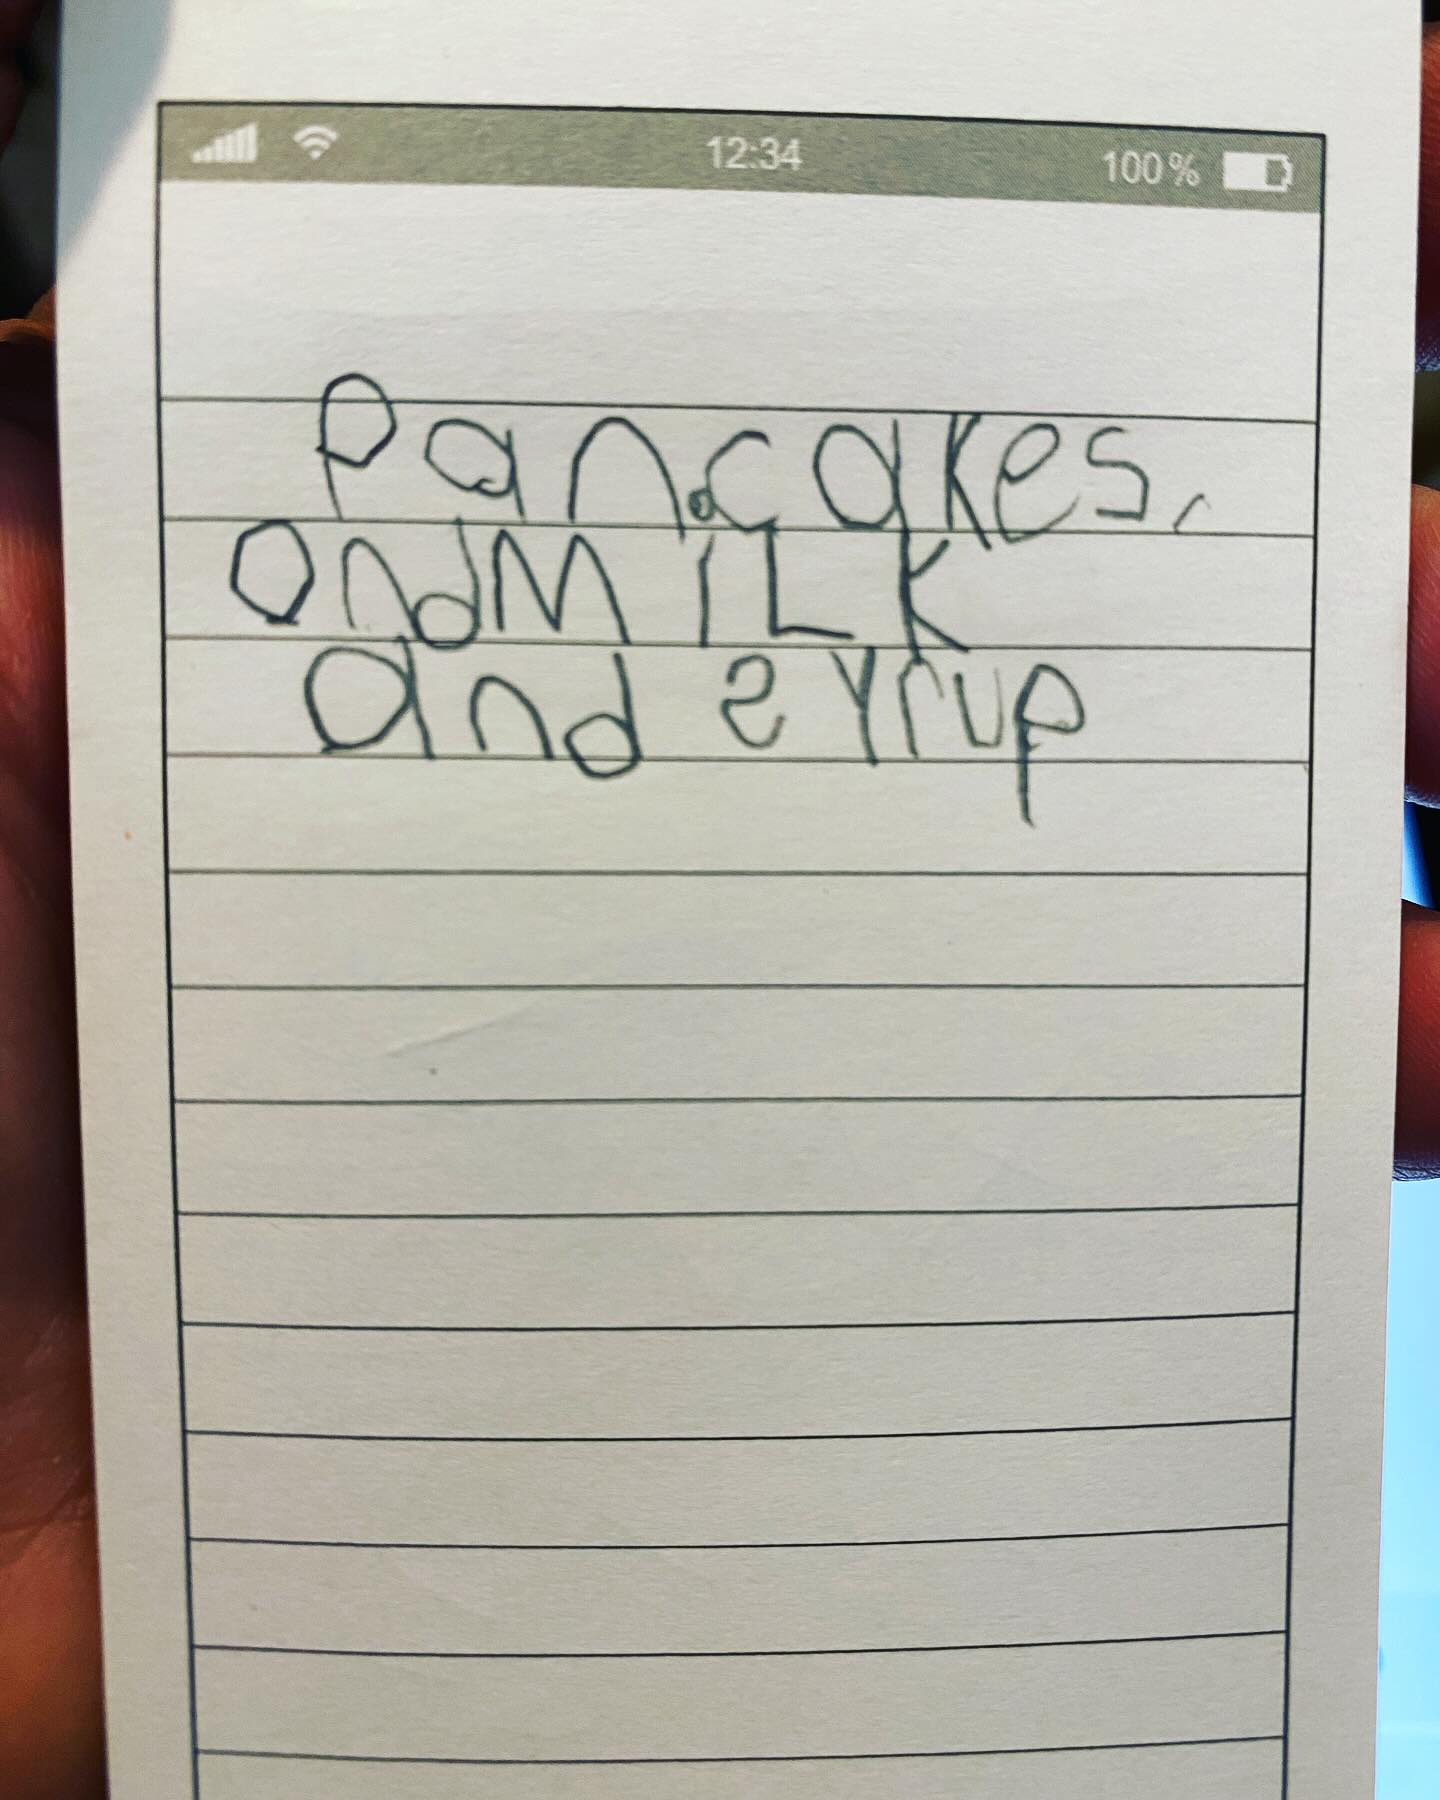 12:34 100%
Pancakes,
andMiLK
and syrup